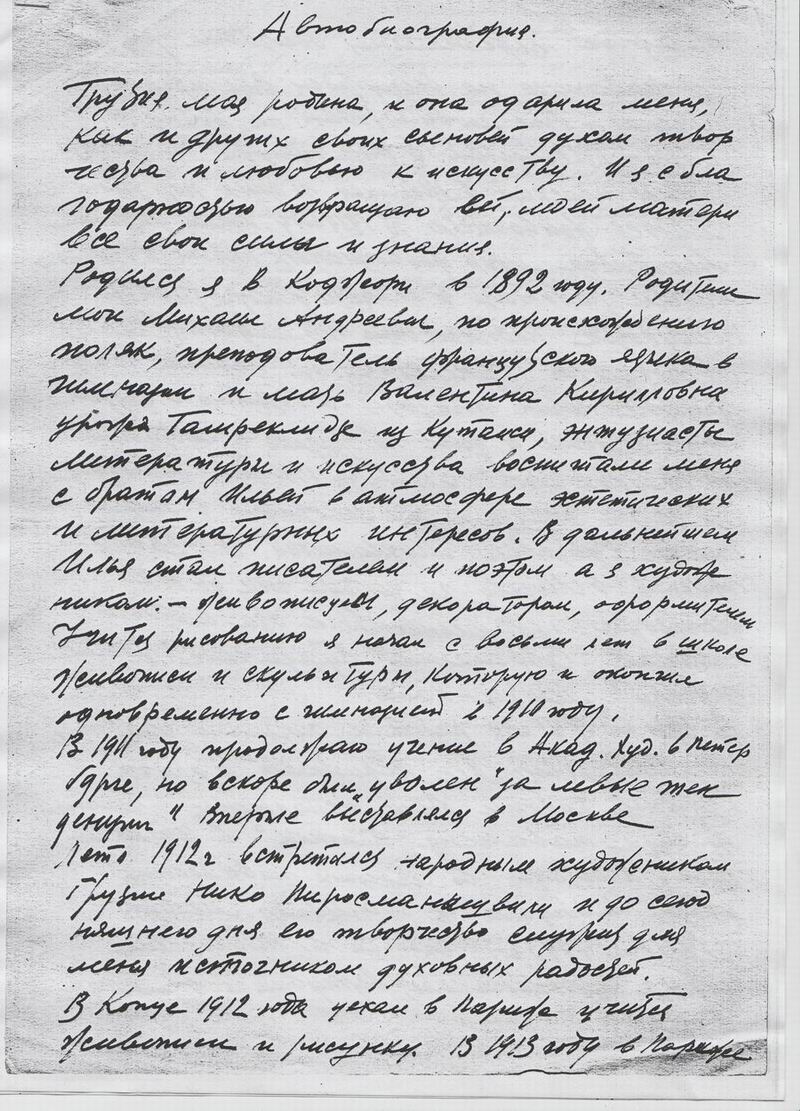 Автобиография.
Грузия моя родина, и она одарила меня,
как и других своих сыновей духом твор
чества и любовью к искусству. И я с бла
годарностью возвращаю ей, моей матери
все свои силы и знания.
Родился я в Коджори в 1892 году. Родители
мои Михаил Андреевич, по происхождению
поляк, преподователь французского языка в
гимназии и мать Валентина Кирилловна
урожд Гамреклидзе из Кутаиси, энтузиасты
литературы и искусства воспитали меня
с братом Ильей в атмосфере эстетических
и литературных интересов. В дальнейшем
Илья стал писателем и поэтом а я худож
ником. – живописцем, декоратором, оформителем
Учится рисованию я начал с восьми лет в школе
живописи и скульптуры, которую и окончил
одновременно с гимназией в 1910 году.
В 1911 году продолжаю учение в Акад. Худ. в Петер
бурге, но вскоре был "уволен" за левые тен
денции" Впервые выставлялся в Москве
Лето 1912 г встретился народным художником
Грузии Нико Пиросманишвили и до сегод
няшнего дня его творчество служит для
меня источником духовных радостей.
В Конце 1912 года уехал в Париж учится
живописи и рисунку. В 1913 году в Париже